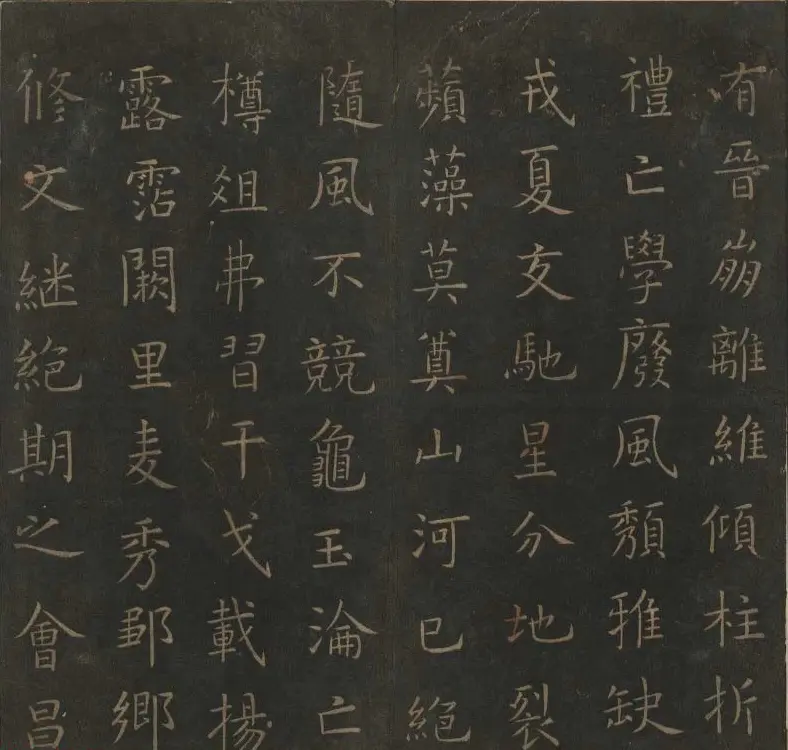 有晉崩離維傾柱折
禮亡學廢風頹雅缺
戎夏交馳星分地裂
蘋藻莫奠山河已絕
隨風不競龜玉淪亡
樽俎弗習干戈載揚
露霑闕里麦秀鄒鄉
修文継絕期之會昌